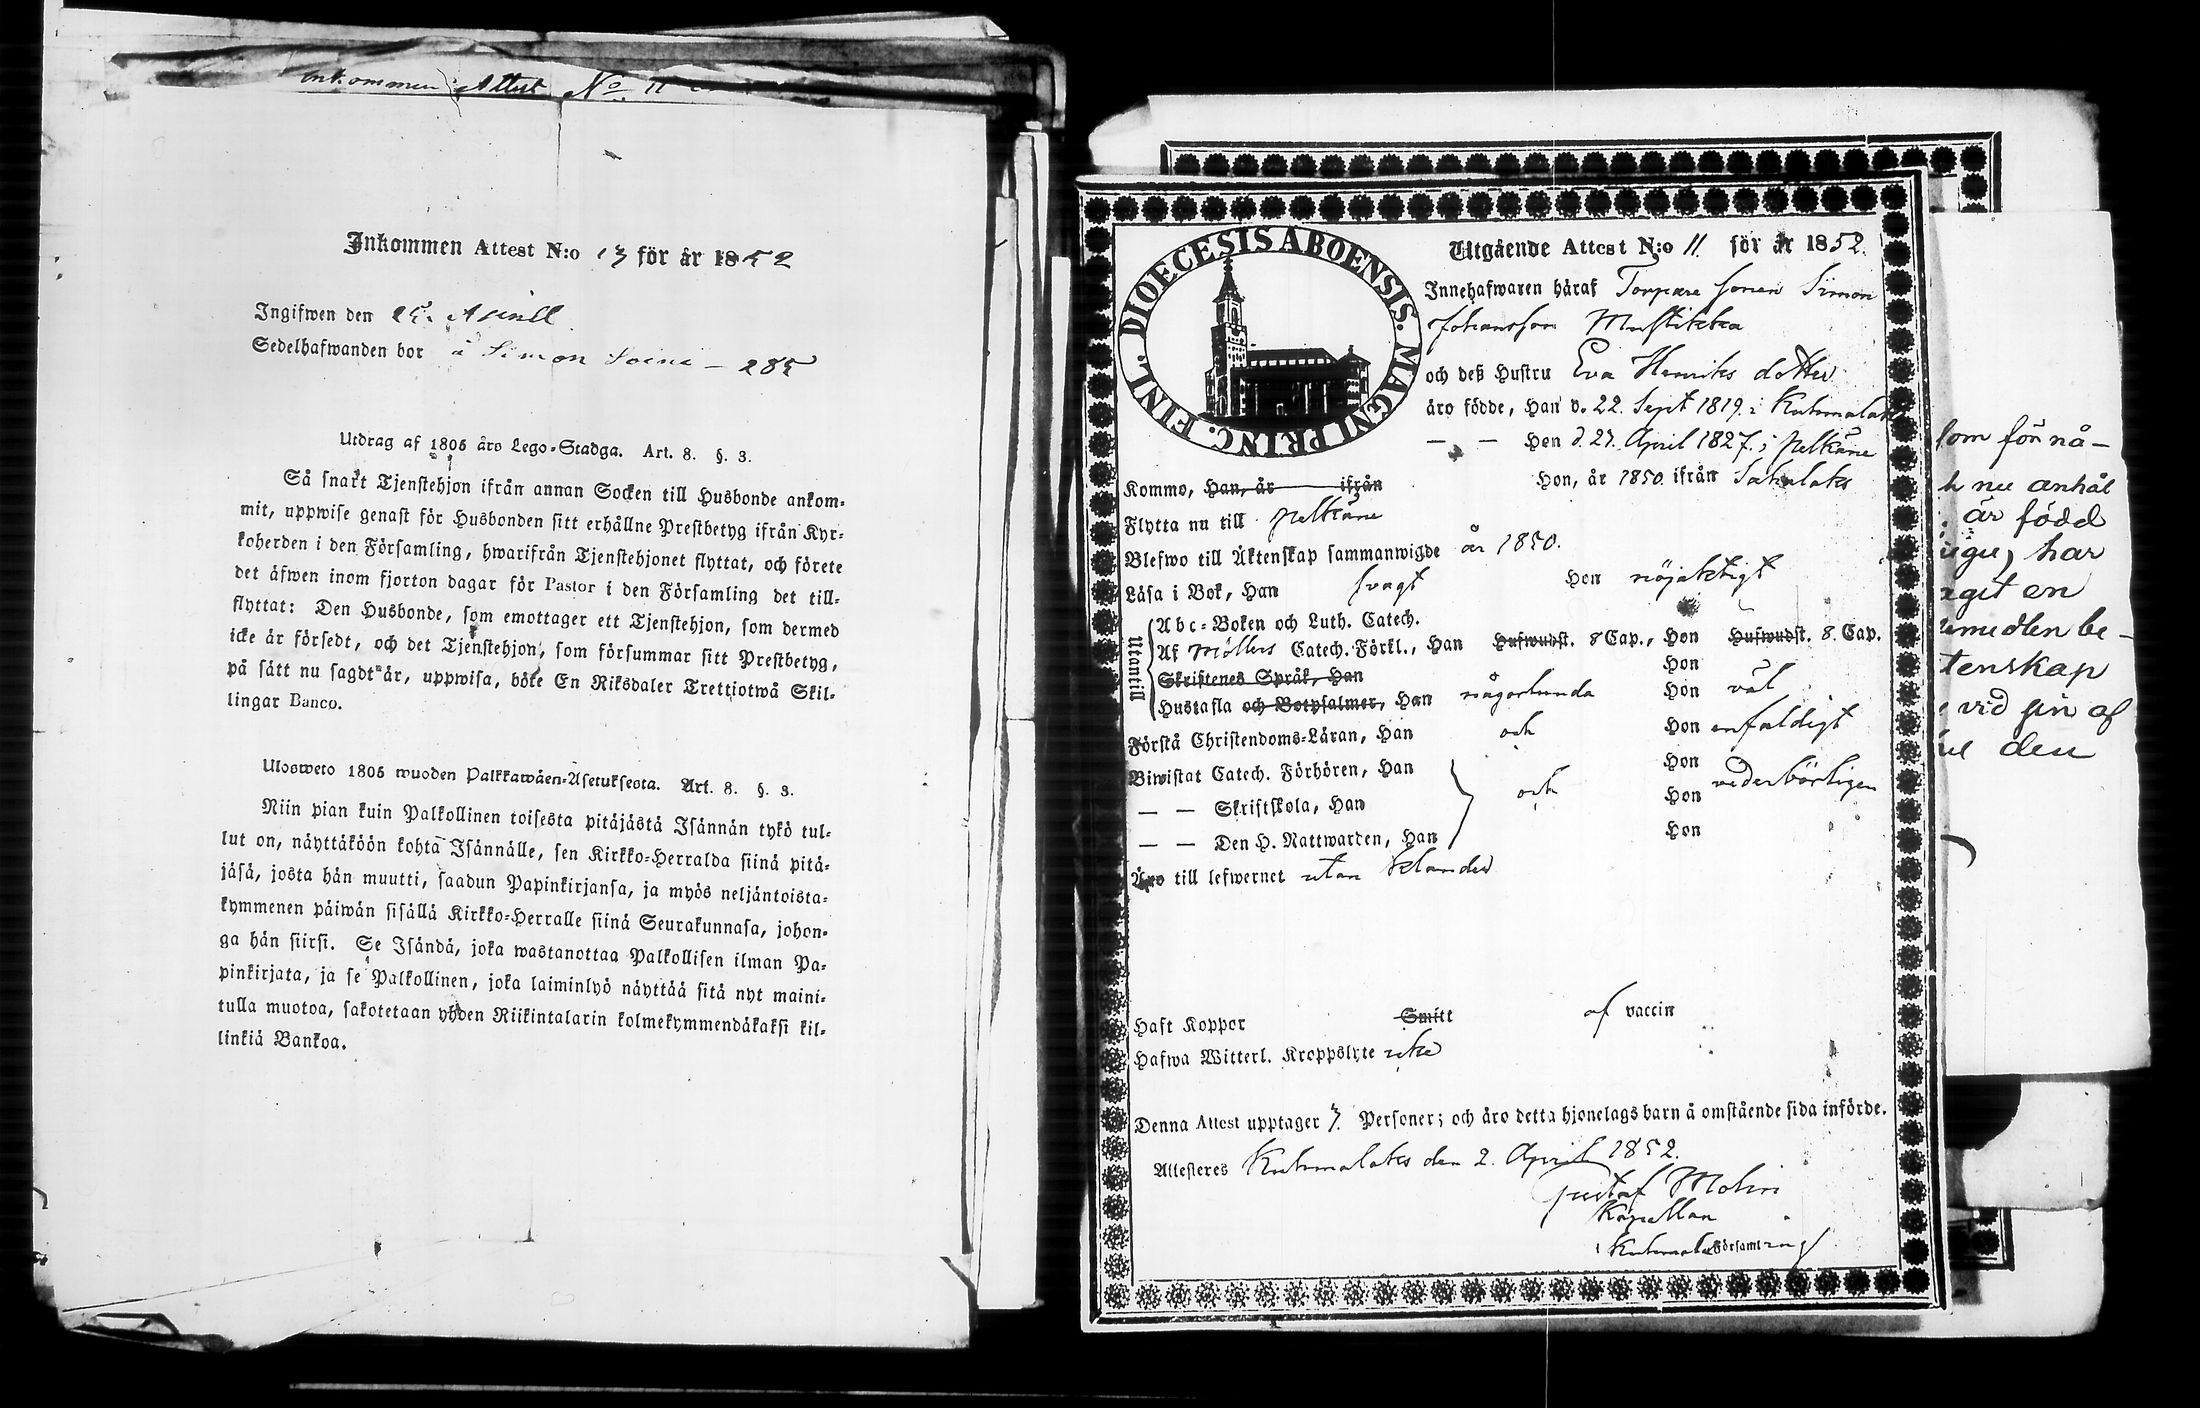 Inkommen Attest No 11
Inkommen Attest N:o 13 för år 1852
Ingifwen den 25. Aprill
Sedelhafwanden bor å Simon Soini – 285
Utdrag af 1805 års Lego-Stadga. Art. 8. §. 3.
Så snart Tjenstehjon ifrån annan Socken till Husbonde ankom-
mit, uppwise genast för Husbonden sitt erhållne Prestbetyg ifrån Kyr-
koherden i den Församling, hwarifrån Tjenstehjonet flyttat, och förete
det äfwen inom fjorton dagar för Pastor i den Församling det till-
flyttat: Den Husbonde, som emottager ett Tjenstehjon, som dermed
icke är försedt, och det Tjenstehjon, som försummar sitt Prestbetyg,
på sätt nu sagdt är, uppwisa, böte En Riksdaler Trettiotwå Skil-
lingar Banco.
Ulosweto 1805 wuoden Palkkawäen-Asetuksesta. Art. 8. §. 3.
Niin pian kuin Palkollinen toisesta pitäjästä Isännän tykö tul-
lut on, näyttäköön kohta Isännälle, sen Kirkko-Herralda siinä pitä-
jäsä, josta hän muutti, saadun Papinkirjansa, ja myös neljäntoista-
kymmenen päiwän sisällä Kirkko-Herralle siinä Seurakunnasa, johon-
ga hän siirsi. Se Isändä, joka wastanottaa Palkollisen ilman Pa-
pinkirjata, ja se Palkollinen, joka laiminlyö näyttää sitä nyt maini-
tulla muotoa, sakotetaan yhden Riikintalarin kolmekymmendäkaksi kil-
linkiä Bankoa.
DIOECESIS ABOENSIS. MAGNI PRINC. FINL.
Utgående Attest N:o 11. för år 1852.
Innehafwaren häraf Torpare sonen Simon
Johansson Mustikka
och deß Hustru Eva Henriks dotter
äro födde, Han d. 22. Sept 1819. i Kuhmalaks
— — Hon d. 27. April 1827. i Pelkäne
Kommo, Han, år ifrån Hon, år 1850. ifrån Sahalaks
Flytta nu till Pelkäne
Blefwo till Äktenskap sammanwigde år 1850.
Läsa i Bok, Han svagt Hon nöjaktigt
Utantill
Abc-Boken och Luth. Catech.
Af Möllers Catech. Förkl., Han Hufwudst. 8 Cap., Hon Hufwudst. 8. Cap.
Skriftenes Språk, Han Hon
Hustafla och Botpsalmer, Han någorlunda Hon väl
Förstå Christendoms-Läran, Han och Hon enfaldigt
Biwistat Catech. Förhören, Han Hon
— — Skriftskola, Han och Hon vederbörligen
— — Den H. Nattwarden, Han Hon
Äro till lefwernet utan klander
Haft Koppor Smitt af vaccin
Hafwa Witterl. Kroppslyte icke
Denna Attest upptager 3. Personer; och äro detta hjonelags barn å omstående sida införde.
Attesteres Kuhmalaks den 2. April 1852.
Gustaf Molin
Kapellan
i Kuhmalaks Församling
som för nå-
nu anhål
är född
har
git en
medlen be-
tenskap
vid sin af
den